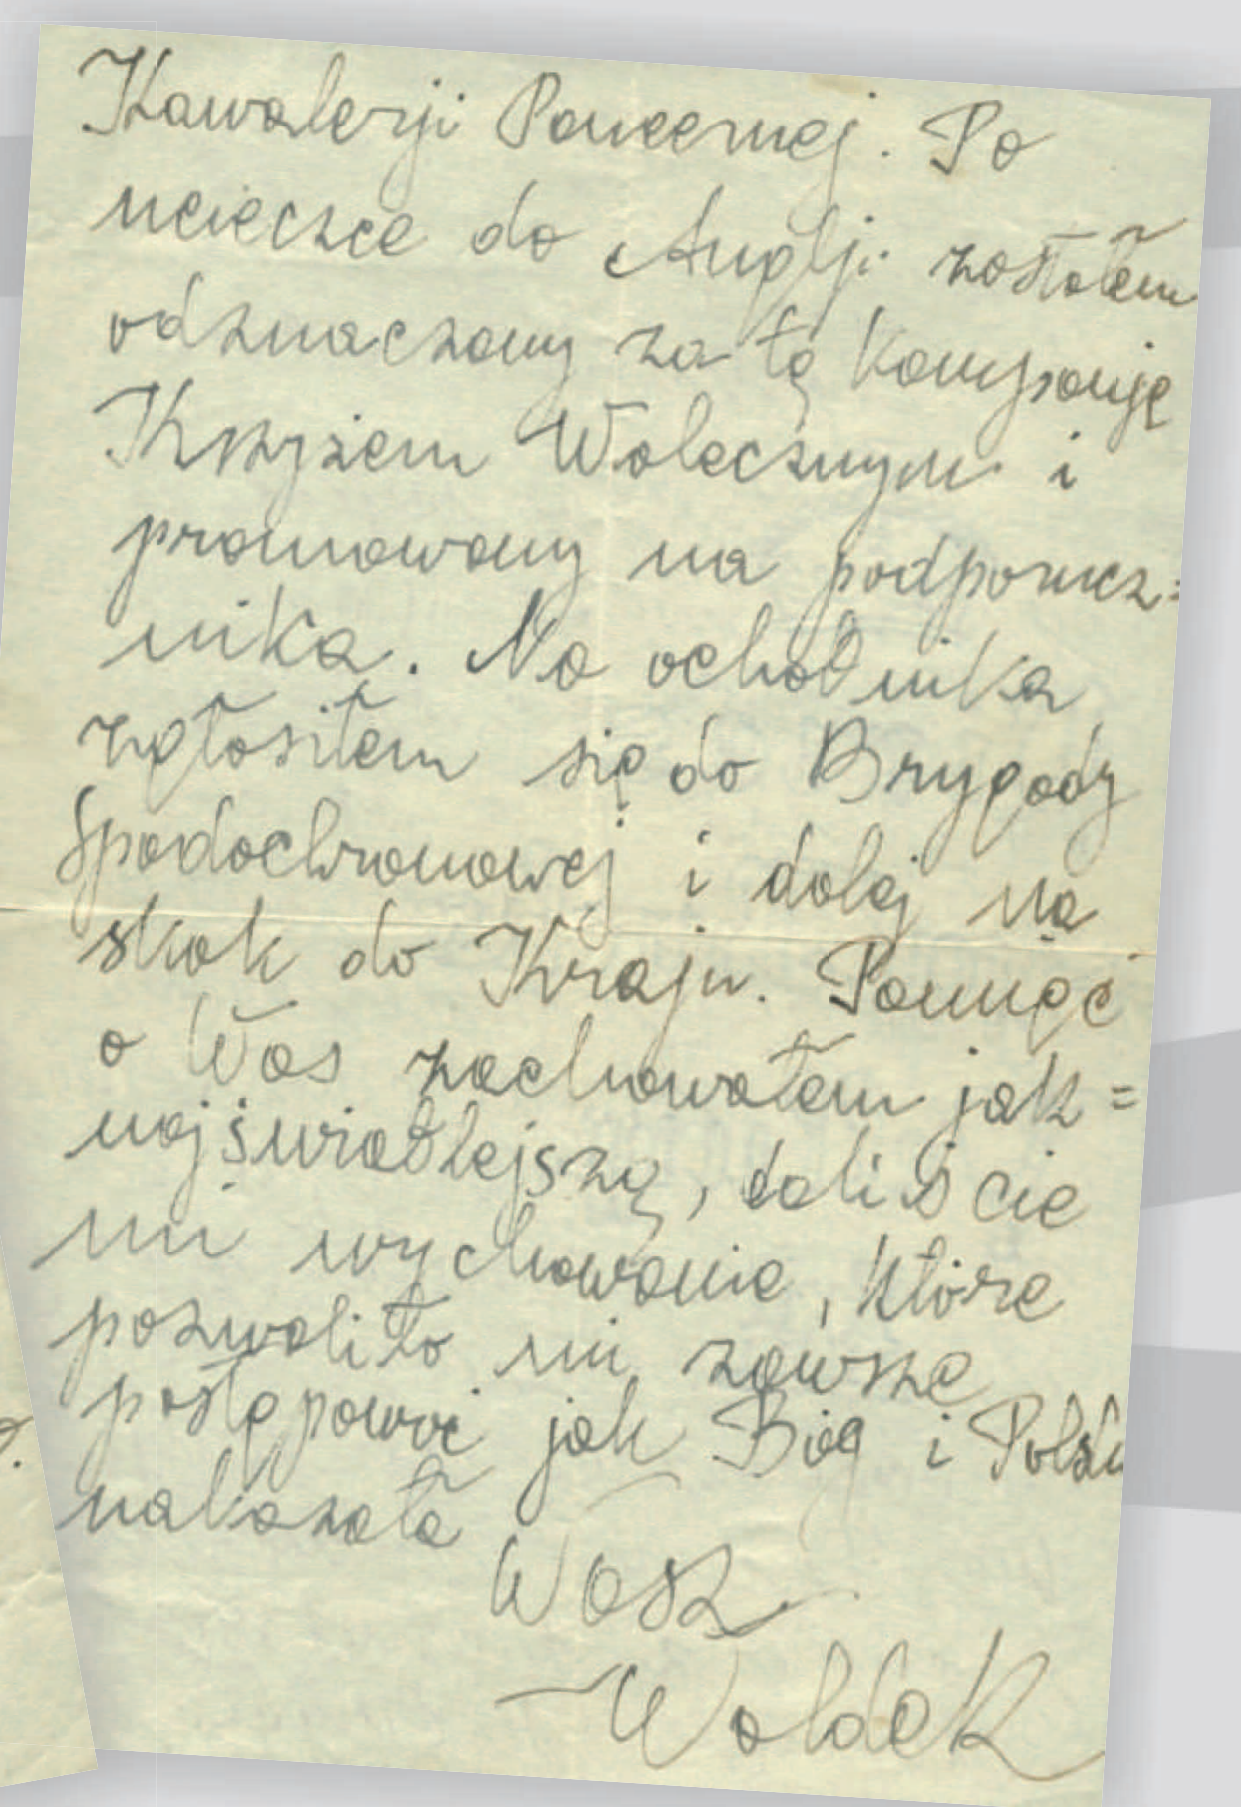 Kawalerji Pancernej. Po
ucieczce do Anglji zostałem
odznaczony za tę kampanję
Krzyżem Walecznym i
promowany na podporucz=
nika. Na ochotnika
zgłosiłem się do Brygady
Spadochronowej i dalej na
skok do Kraju. Pamięć
o Was zachowałem jak=
najświetlejszą, daliście
mi wychowanie, które
pozwoliło mi zawsze
postępować jak Bóg i Polska
nakazała
Wasz
Waldek